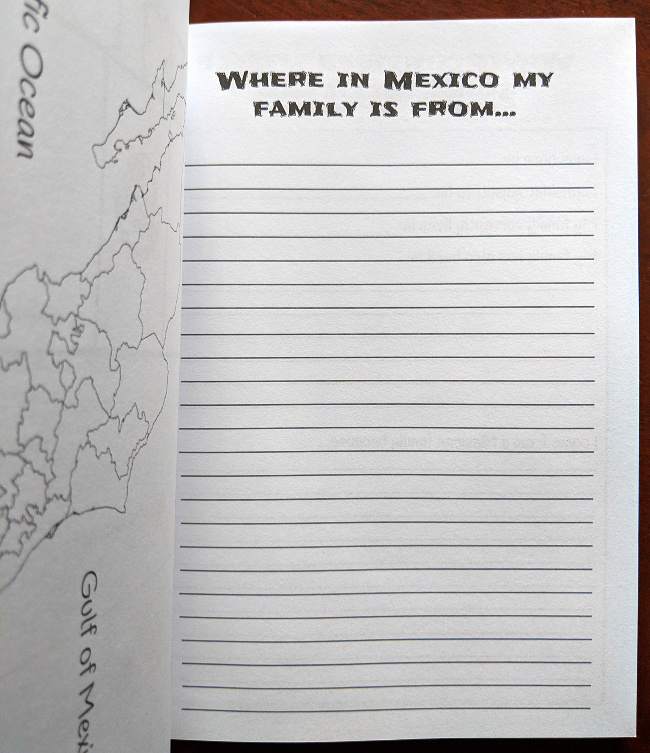 fic Ocean
Gulf of Mexi
WHERE IN MEXICO MY
FAMILY IS FROM...